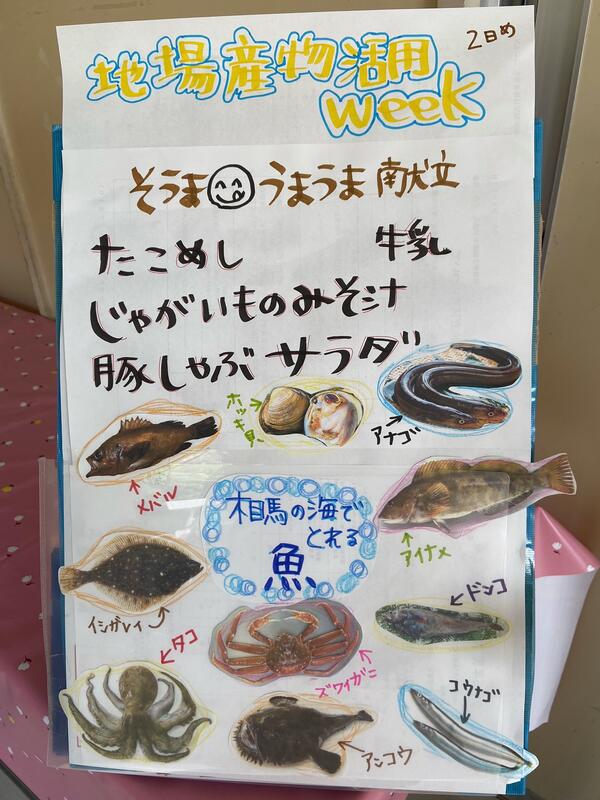 2日め
地場産物活用
week
そうまうまうま献立
たこめし 牛乳
じゃがいものみそ汁
豚しゃぶサラダ
ホッキ貝
アナゴ
メバル
アイナメ
相馬の海で
とれる
魚
イシガレイ
ドンコ
タコ
ズワイガニ
コウナゴ
アンコウ